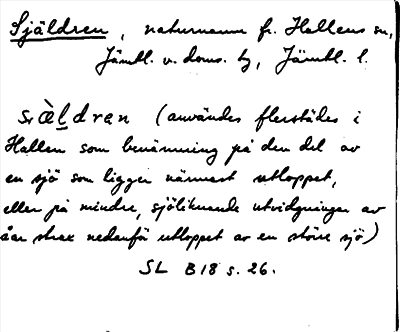 Själdren, naturnamn fr. Hallens sn,
Jämtl. v. doms. hj, Jämtl. l.
sæ̀ldren (användes flerstädes i
Hallen som benämning på den del av
en sjö som ligger närmast utloppet,
eller på mindre, sjöliknande utvidgningar av
åar strax nedanför utloppet av en större sjö)
SL B18 s. 26.